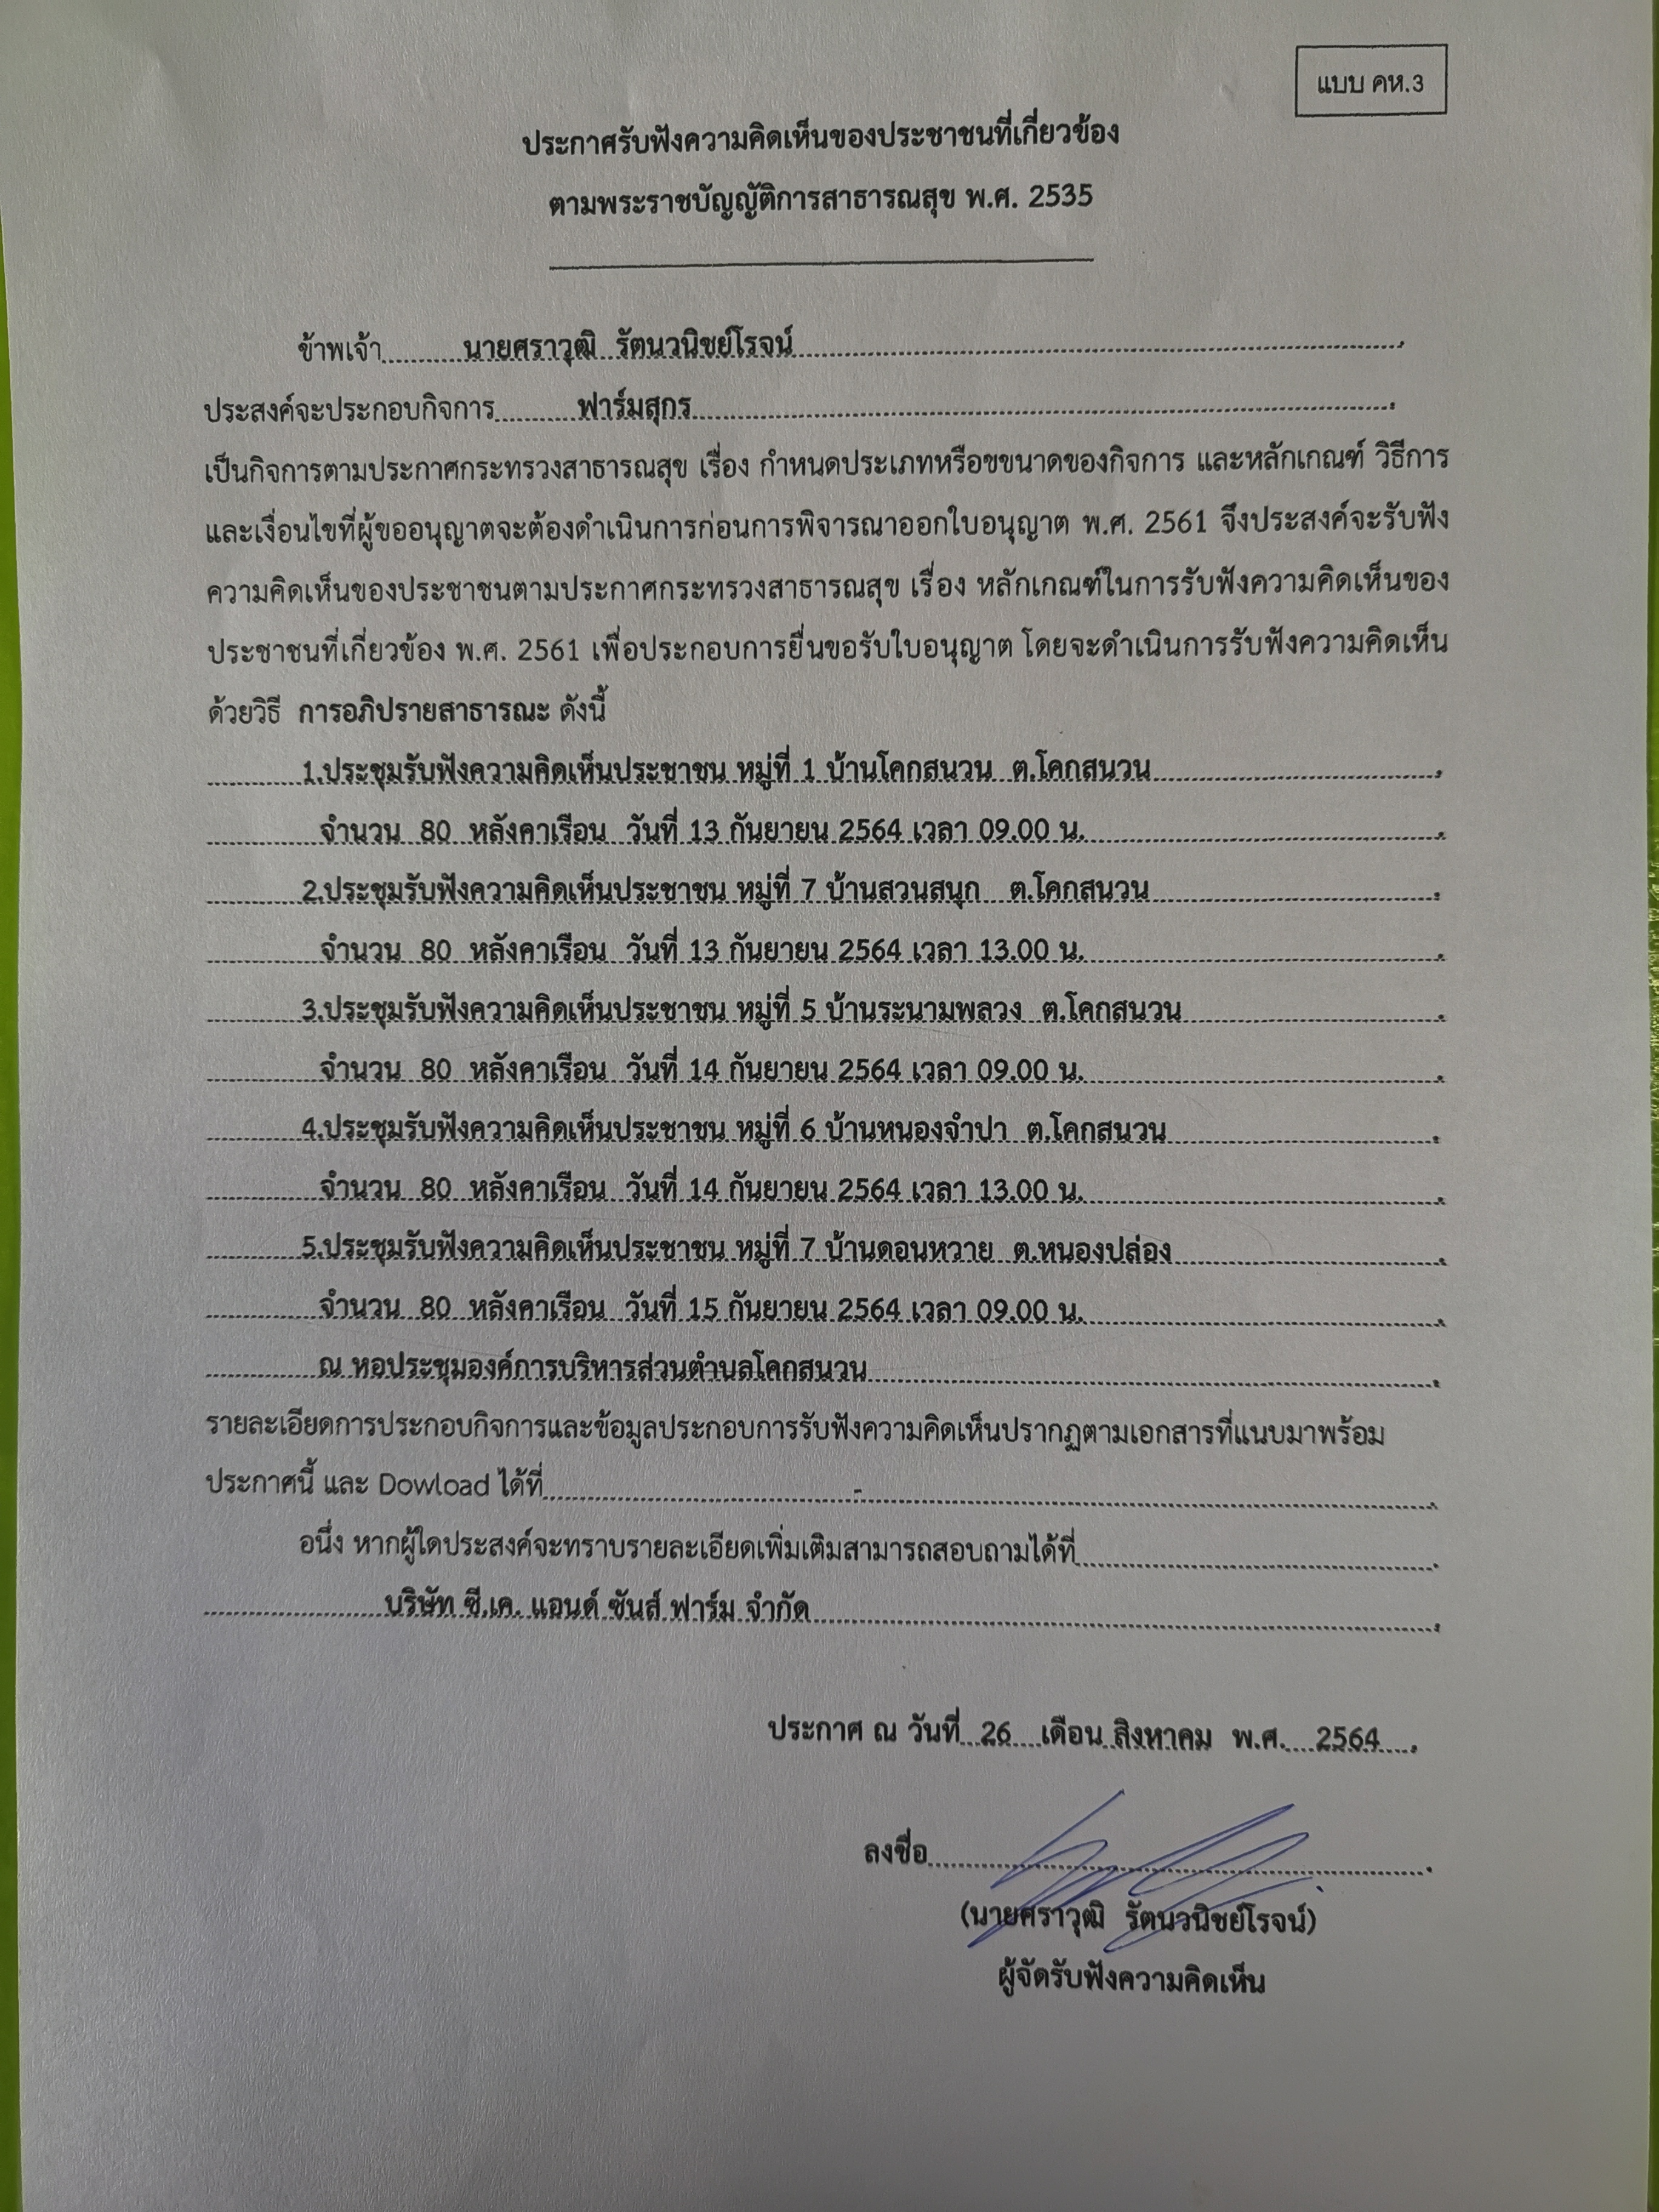 แบบ คห.3
ประกาศรับฟังความคิดเห็นของประชาชนที่เกี่ยวข้อง
ตามพระราชบัญญัติการสาธารณสุข พ.ศ. 2535
ข้าพเจ้า นายศราวุฒิ รัตนวนิชย์โรจน์
ประสงค์จะประกอบกิจการ ฟาร์มสุกร
เป็นกิจการตามประกาศกระทรวงสาธารณสุข เรื่อง กำหนดประเภทหรือขขนาดของกิจการ และหลักเกณฑ์ วิธีการ
และเงื่อนไขที่ผู้ขออนุญาตจะต้องดำเนินการก่อนการพิจารณาออกใบอนุญาต พ.ศ. 2561 จึงประสงค์จะรับฟัง
ความคิดเห็นของประชาชนตามประกาศกระทรวงสาธารณสุข เรื่อง หลักเกณฑ์ในการรับฟังความคิดเห็นของ
ประชาชนที่เกี่ยวข้อง พ.ศ. 2561 เพื่อประกอบการยื่นขอรับใบอนุญาต โดยจะดำเนินการรับฟังความคิดเห็น
ด้วยวิธี การอภิปรายสาธารณะ ดังนี้
1.ประชุมรับฟังความคิดเห็นประชาชน หมู่ที่ 1 บ้านโคกสนวน ต.โคกสนวน
จำนวน 80 หลังคาเรือน วันที่ 13 กันยายน 2564 เวลา 09.00 น.
2.ประชุมรับฟังความคิดเห็นประชาชน หมู่ที่ 7 บ้านสวนสนุก ต.โคกสนวน
จำนวน 80 หลังคาเรือน วันที่ 13 กันยายน 2564 เวลา 13.00 น.
3.ประชุมรับฟังความคิดเห็นประชาชน หมู่ที่ 5 บ้านระนามพลวง ต.โคกสนวน
จำนวน 80 หลังคาเรือน วันที่ 14 กันยายน 2564 เวลา 09.00 น.
4.ประชุมรับฟังความคิดเห็นประชาชน หมู่ที่ 6 บ้านหนองจำปา ต.โคกสนวน
จำนวน 80 หลังคาเรือน วันที่ 14 กันยายน 2564 เวลา 13.00 น.
5.ประชุมรับฟังความคิดเห็นประชาชน หมู่ที่ 7 บ้านดอนหวาย ต.หนองปล่อง
จำนวน 80 หลังคาเรือน วันที่ 15 กันยายน 2564 เวลา 09.00 น.
ณ หอประชุมองค์การบริหารส่วนตำบลโคกสนวน
รายละเอียดการประกอบกิจการและข้อมูลประกอบการรับฟังความคิดเห็นปรากฏตามเอกสารที่แนบมาพร้อม
ประกาศนี้ และ Dowload ได้ที่ -
อนึ่ง หากผู้ใดประสงค์จะทราบรายละเอียดเพิ่มเติมสามารถสอบถามได้ที่
บริษัท ซี.เค. แอนด์ ซันส์ ฟาร์ม จำกัด
ประกาศ ณ วันที่ 26 เดือน สิงหาคม พ.ศ. 2564
ลงชื่อ
(นายศราวุฒิ รัตนวนิชย์โรจน์)
ผู้จัดรับฟังความคิดเห็น